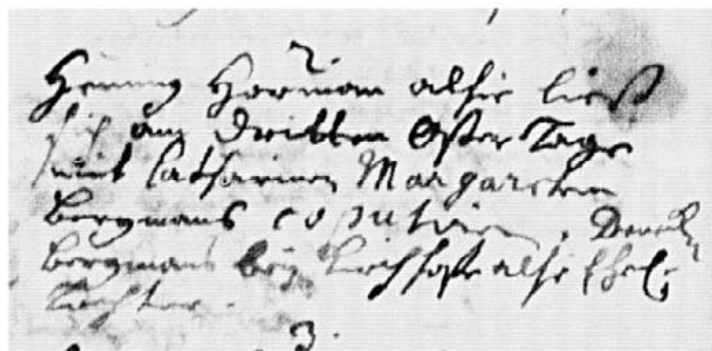 2.
Henning Horman alhie ließ
sich am dritten Oster Tage
mit Catharinen Margareten
Bergmans copuliren,
Bergmans bey Kirchhofe alhie Ehel.
Tochter.
3.